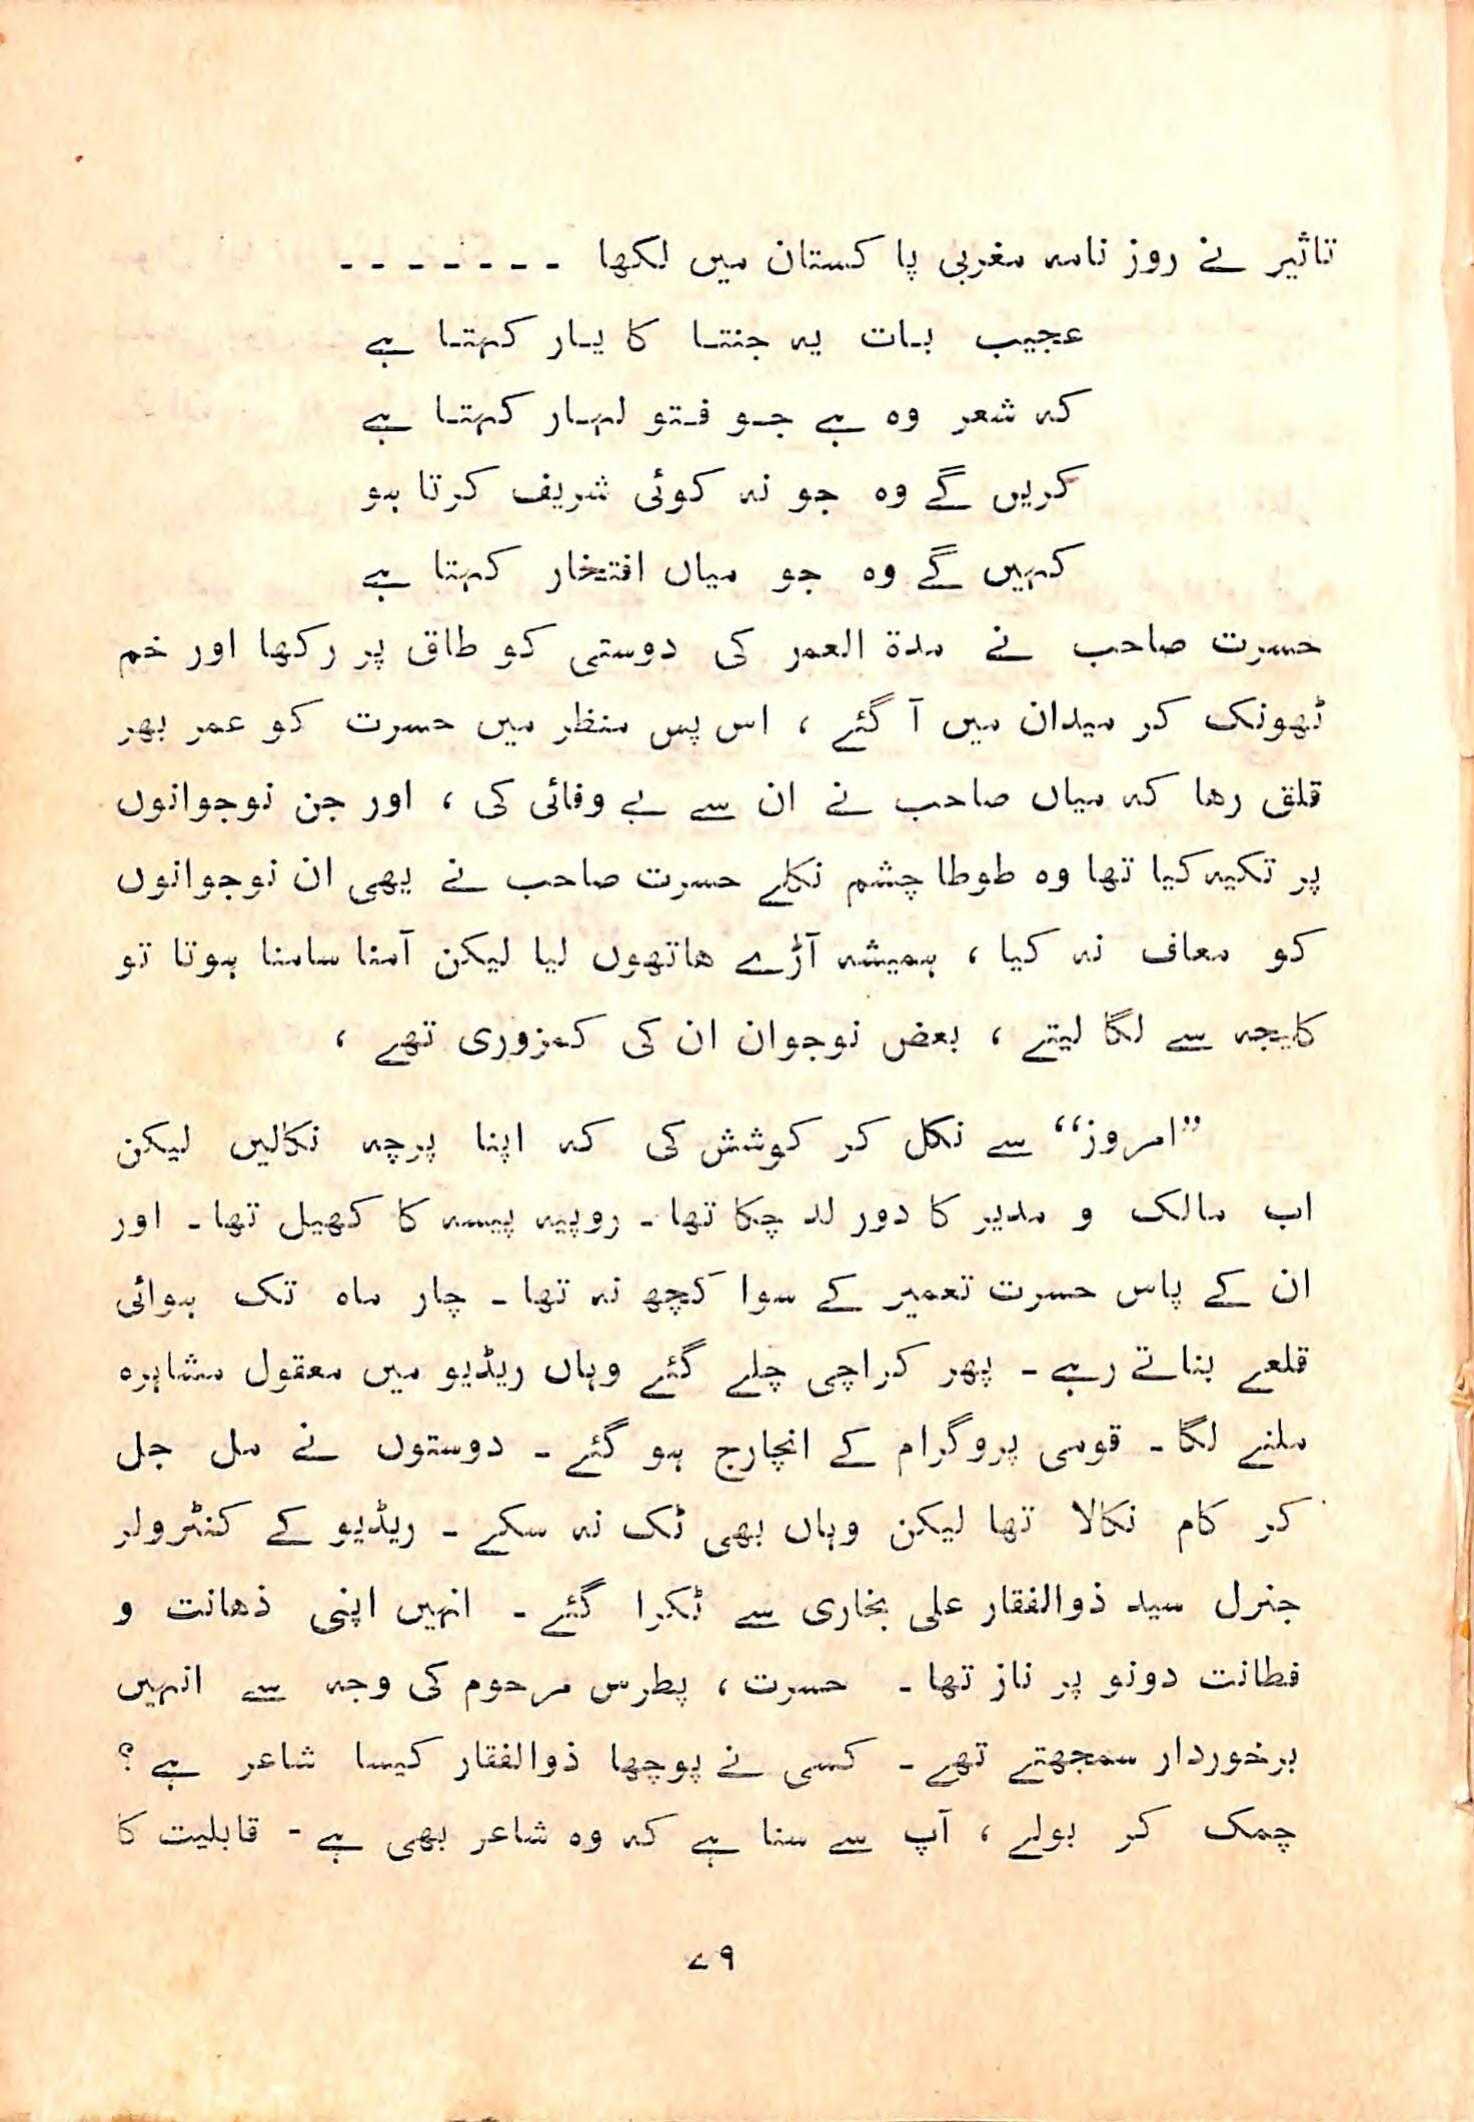 تاثیر نے روز نامہ مغربی پاکستان میں لکھا - - - - - - -
عجیب بات یہ جنتا کا یار کہتا ہے
کہ شعر وہ ہے جو فتو لہار کہتا ہے
کریں گے وہ جو نہ کوئی شریف کرتا ہو
کہیں گے وہ جو میاں افتخار کہتا ہے
حسرت صاحب نے مدة العمر کی دوستی کو طاق پر رکھا اور خم
ٹھونک کر میدان میں آ گئے ، اس پس منظر میں حسرت کو عمر بھر
قلق رھا کہ میاں صاحب نے ان سے بے وفائی کی ، اور جن نوجوانوں
پر تکیہ کیا تھا وہ طوطا چشم نکلے حسرت صاحب نے بھی ان نوجوانوں
کو معاف نہ کیا ، ہمیشہ آڑے ھاتھوں لیا لیکن آمنا سامنا ہوتا تو
کلیجہ سے لگا لیتے ، بعض نوجوان ان کی کمزوری تھے ،
”امروز“ سے نکل کر کوشش کی کہ اپنا پرچہ نکالیں لیکن
اب مالک و مدیر کا دور لد چکا تھا ۔ روپیہ پیسہ کا کھیل تھا ۔ اور
ان کے پاس حسرت تعمیر کے سوا کچھ نہ تھا ۔ چار ماہ تک ہوائی
قلعے بناتے رہے ۔ پھر کراچی چلے گئے وہاں ریڈیو میں معقول مشاہرہ
ملنے لگا ۔ قومی پروگرام کے انچارج ہو گئے ۔ دوستوں نے مل جل
کر کام نکالا تھا لیکن وہاں بھی ٹک نہ سکے ۔ ریڈیو کے کنٹرولر
جنرل سید ذوالفقار علی بخاری سے ٹکرا گئے ۔ انہیں اپنی ذھانت و
فطانت دونو پر ناز تھا ۔ حسرت ، پطرس مرحوم کی وجہ سے انہیں
برخوردار سمجھتے تھے ۔ کسی نے پوچھا ذوالفقار کیسا شاعر ہے ؟
چمک کر بولے ، آپ سے سنا ہے کہ وہ شاعر بھی ہے - قابلیت کا
۷۹